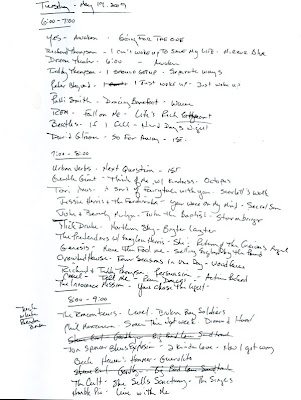 Tuesday - May 19, 2009
6:00 - 7:00
Yes - Awaken - Going For The One
Richard Thompson - I Can't Wake Up To Save My Life - Mirror Blue
Dream Theater - 6:00 - Awake
Teddy Thompson - I Should Get Up - Separate Ways
Peter - I Just Woke Up - Just Woke Up
Patti Smith - Dancing Barefoot - Wave
REM - Fallon Me - Life's Rich Pageant
Beatles - If I Fell - Hard Day's Night
David Gilmour - So Far Away - 1st
7:00 - 8:00
Urban Verbs - Next Question - 1st
Gentle Giant - Think of Me w/ Kindness - Octopus
Tori Amos - A Sort of Fairytale with you - Scarlet's Walk
Jessie Harris & the Ferdinandos - You Were On My Mind - Secret Sun
John & Beverly Martyn - John the Baptist - Stormbringer
Nick Drake - Northern Sky - Bryter Layter
The Pretenders w/ Emmylou Harris - She - Return of the Grievous Angel
Genesis - More Than Fool Me - Selling England by the Pound
Crowded House - Four Seasons in One Day - Woodface
Richard & Teddy Thompson - Persuasion - Action Packed
The Innocence Mission - You Chase the Light
8:00 - 9:00
The Raconteurs - Level - Broken Boy Soldiers
Phil Manzanera - Same Time Next Week - Diamond Head
Jon Spencer Blues Explosion - 2 Kindsa Love - Now I Got Worry
Cycle
The Cult - She Sells Sanctuary - The Singles
Humble Pie - Live With Me